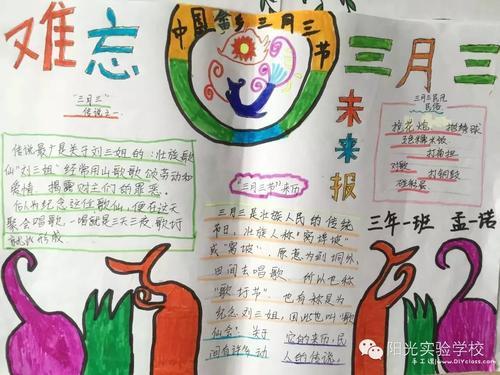 难忘
中国壮乡三月三节
三月三
未来报
"三月三"
传说之一
传说最广是关于刘三姐的:壮族歌
仙"刘三姐"经常用山歌歌颂劳动和
爱情,揭露财主们的罪恶。
后人为纪念这位歌仙,便在这天
聚会唱歌,一唱就是三天三夜,歌圩
就此形成
"三月三节"来历
三月三是壮族人民的传统
节日,壮族人称"窝埠坡"
或"窝坡",原意为到垌外、
田间去唱歌,所以也称
"歌圩节",也有称是为
纪念刘三姐,因此也叫"歌
仙会",关于它的来历,民
间有许多动人的传说。
三月三民风
民俗
抢花炮、抛绣球
五色糯米饭
打扁担
对歌 打铜鼓
碰红蛋
三年一班 孟一诺
阳光实验学校
手工课www.DIYclass.com